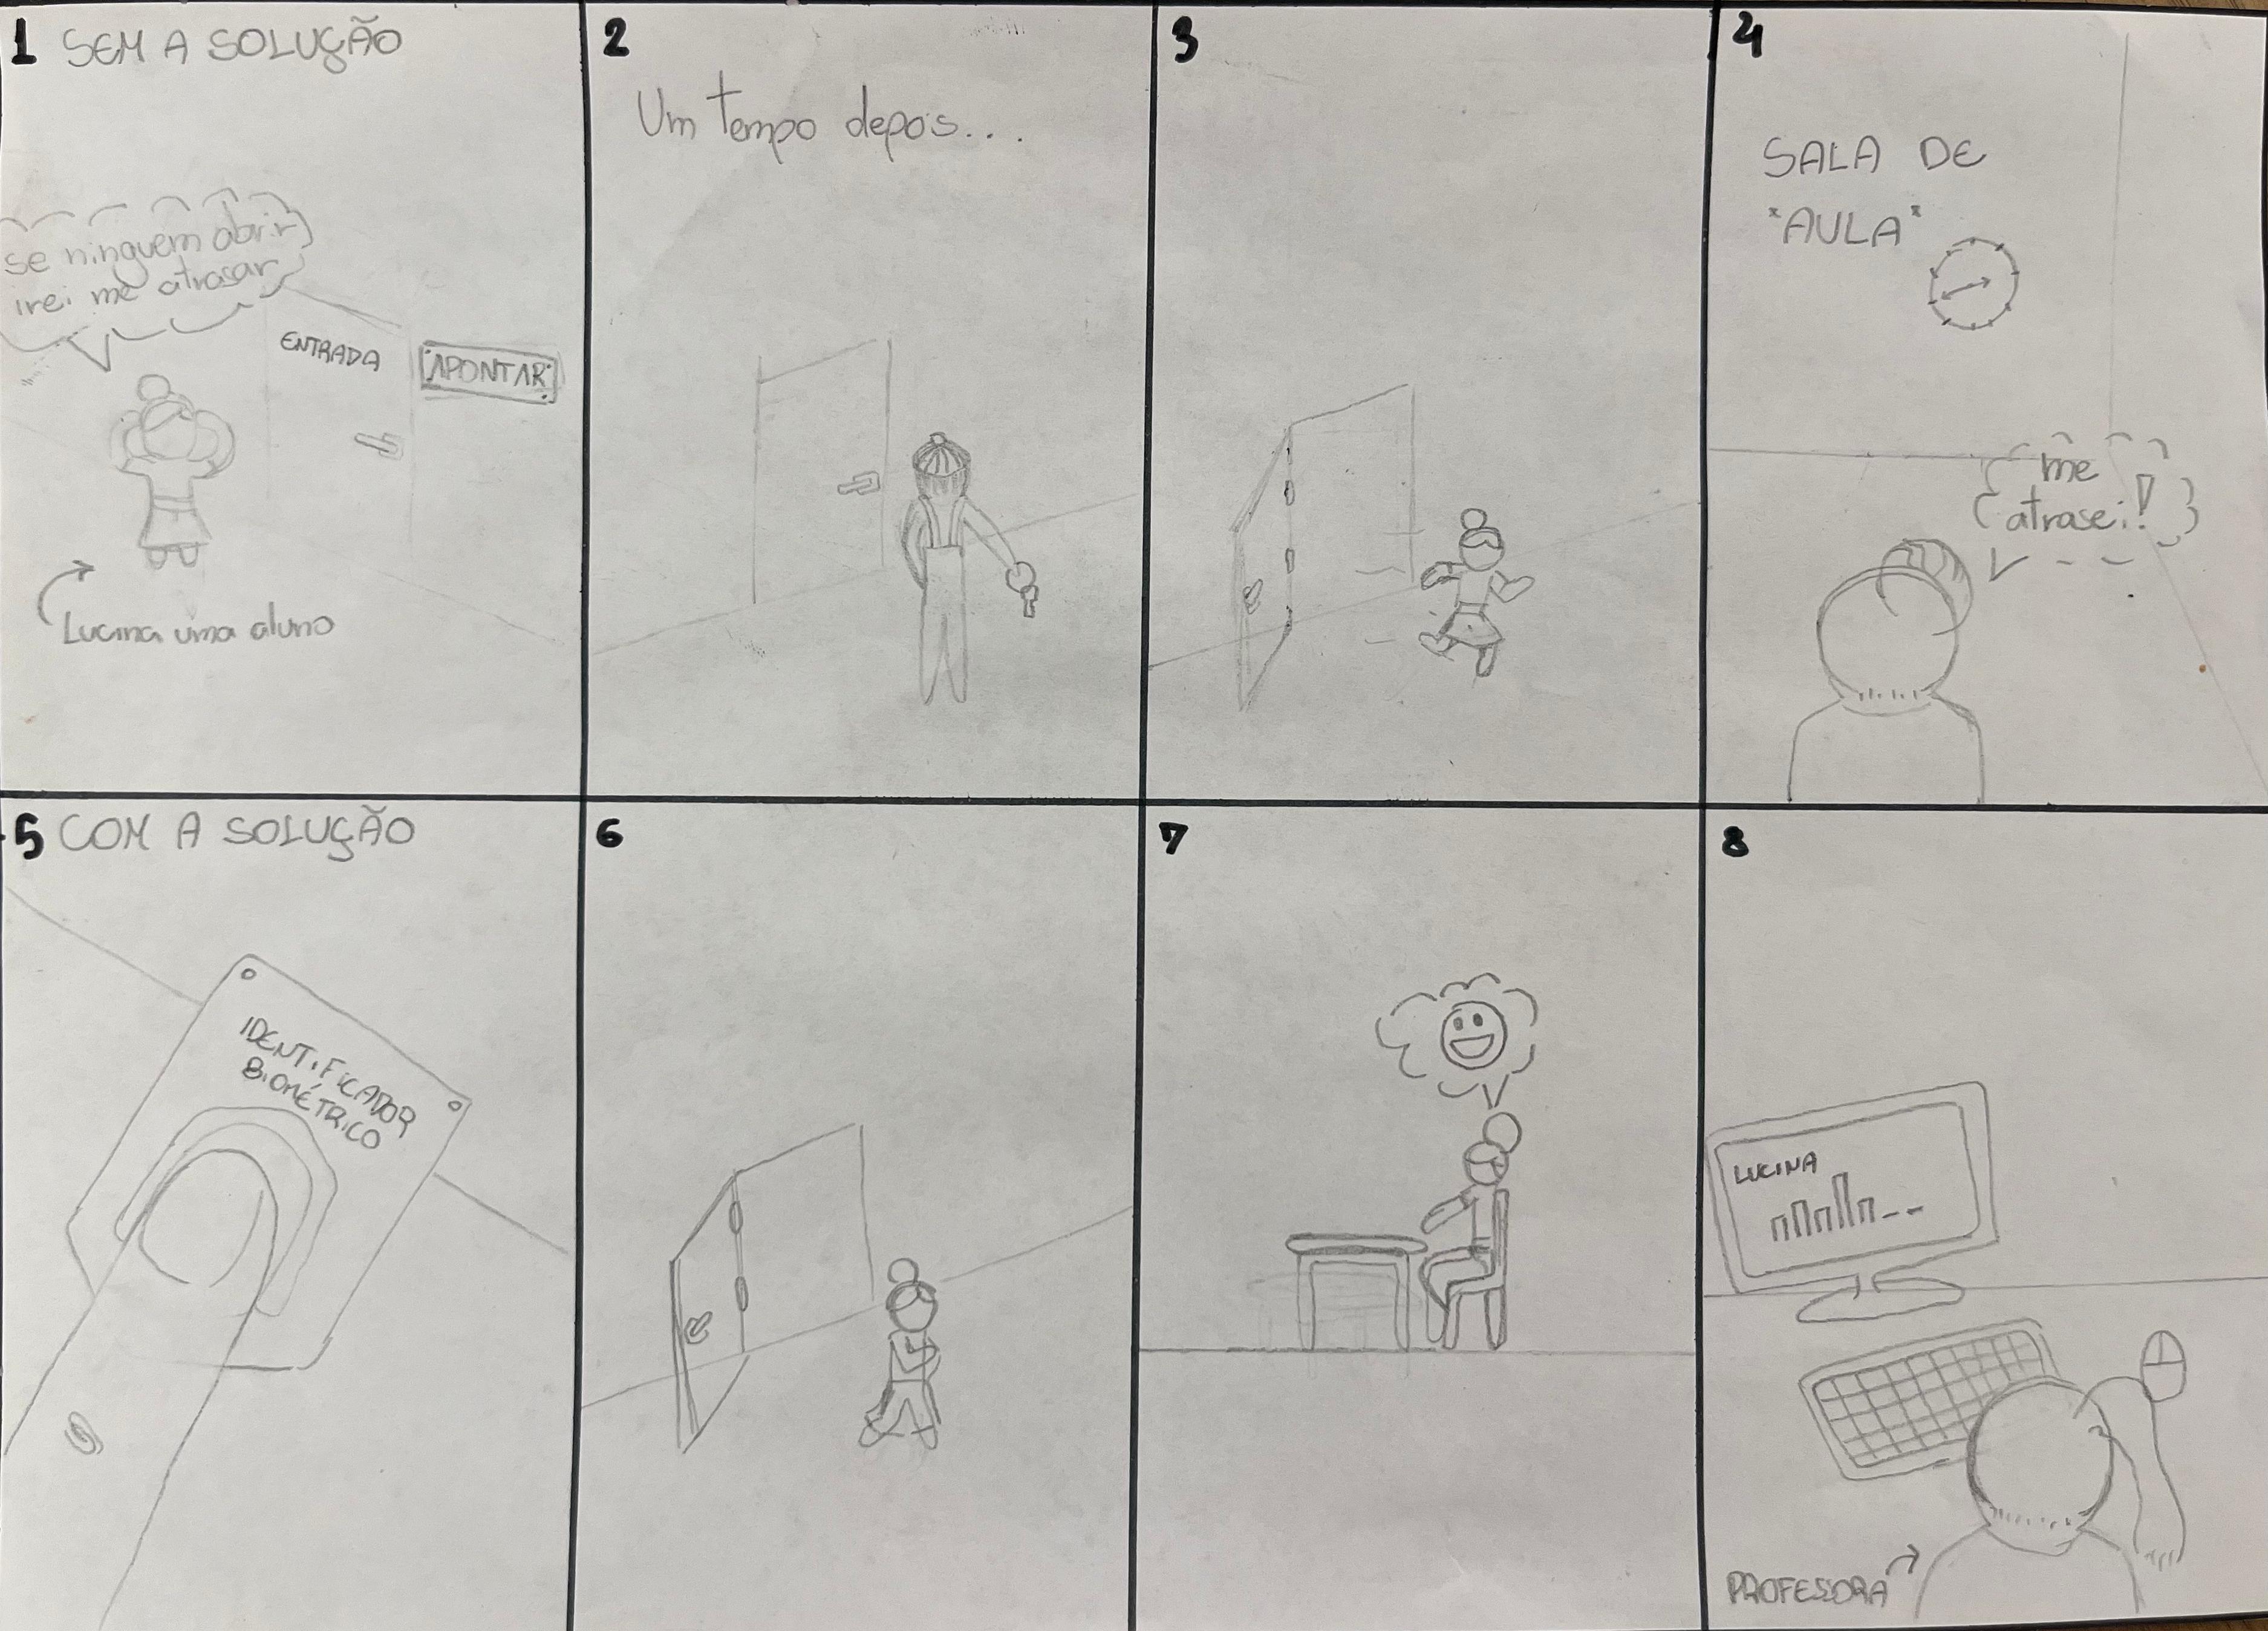 1 SEM A SOLUÇÃO
se ninguem abrir
irei me atrasar
ENTRADA
APONTAR
Lucina uma aluno
2
Um tempo depois...
3
4
SALA DE
"AULA"
me
atrasei!
5 COM A SOLUÇÃO
IDENTIFICADOR
BIOMÉTRICO
6
7
8
LUCINA
PROFESSORA